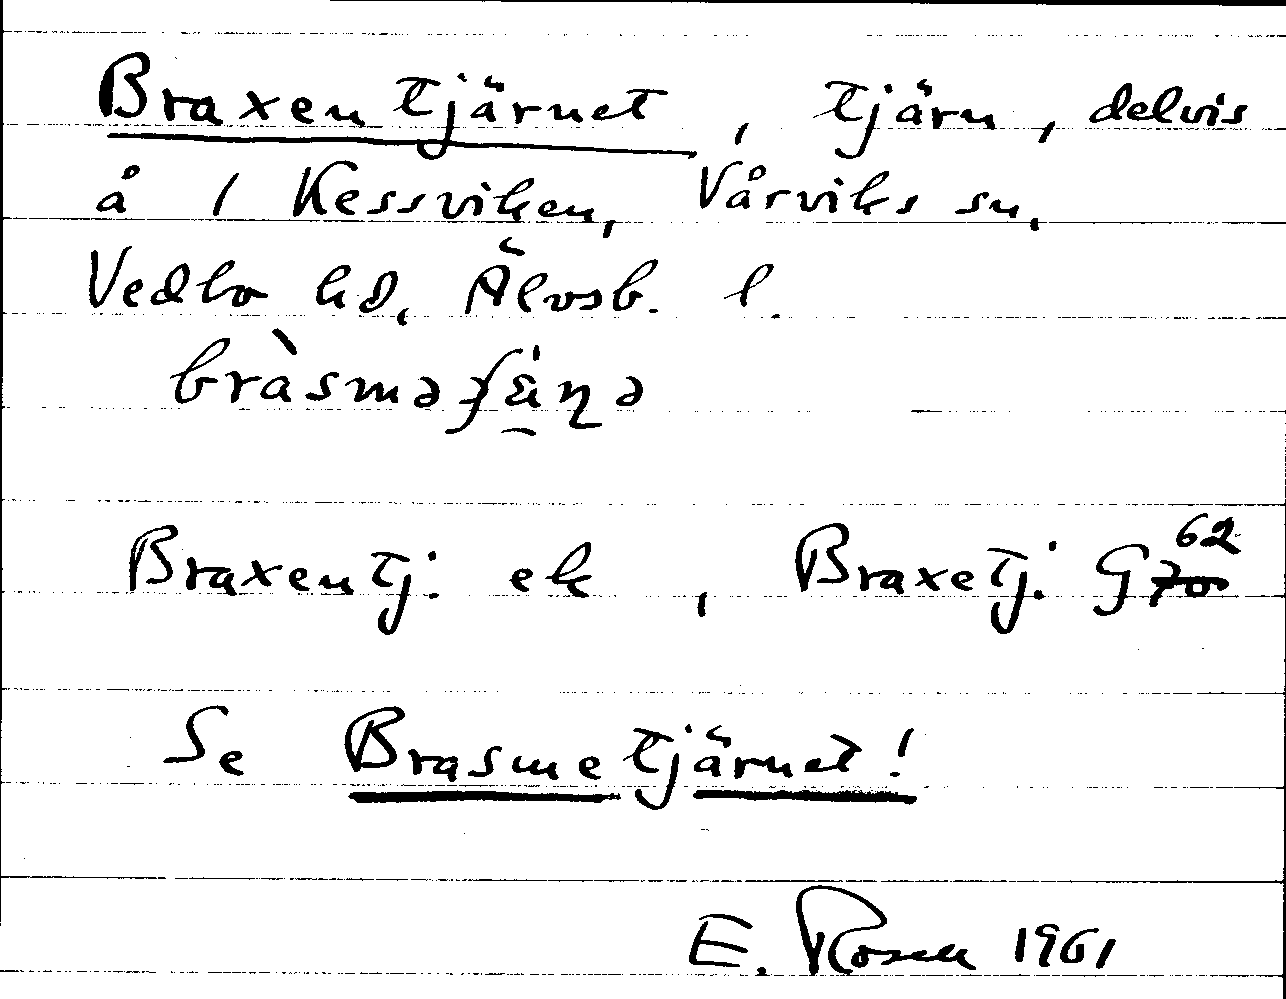 Braxentjärnet, tjärn, delvis
å 1 Kessviken, Vårviks sn,
Vedbo hd, Älvsb. l.
bràsməʃänə
Braxentj. ek, Braxetj. G 62 70
Se Brasmetjärnet!
E. Rosen 1961